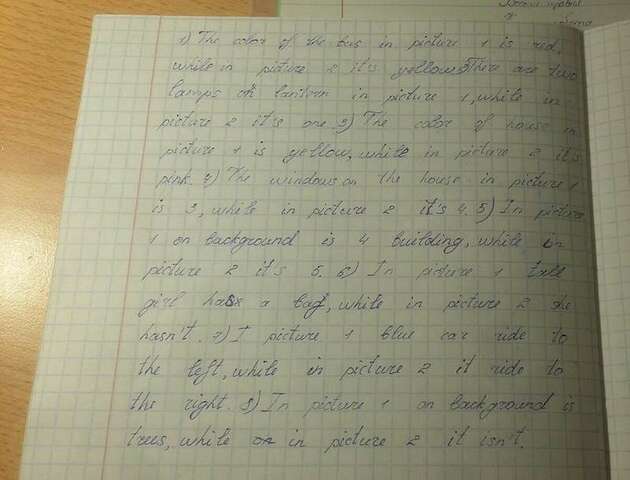 1) The color of the bus in picture 1 is red,
while in picture 2 it's yellow.2)There are two
lamps on lantern in picture 1, while in
picture 2 it's one.3) The color of house in
picture 1 is yellow, while in picture 2 it's
pink.4) The windows on the house in picture 1
is 3, while in picture 2 it's 4. 5) In picture
1 on background is 4 building, while in
picture 2 it's 5. 6) In picture 1
girl has a bag, while in picture 2 she
hasn't. 7) I picture 1 blue car ride to
the left, while in picture 2 it ride to
the right. 8) In picture 1 on background is
trees, while in picture 2 it isn't.